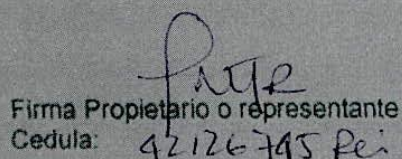 Firma Propietario o representante
Cedula: 42126745 Pei